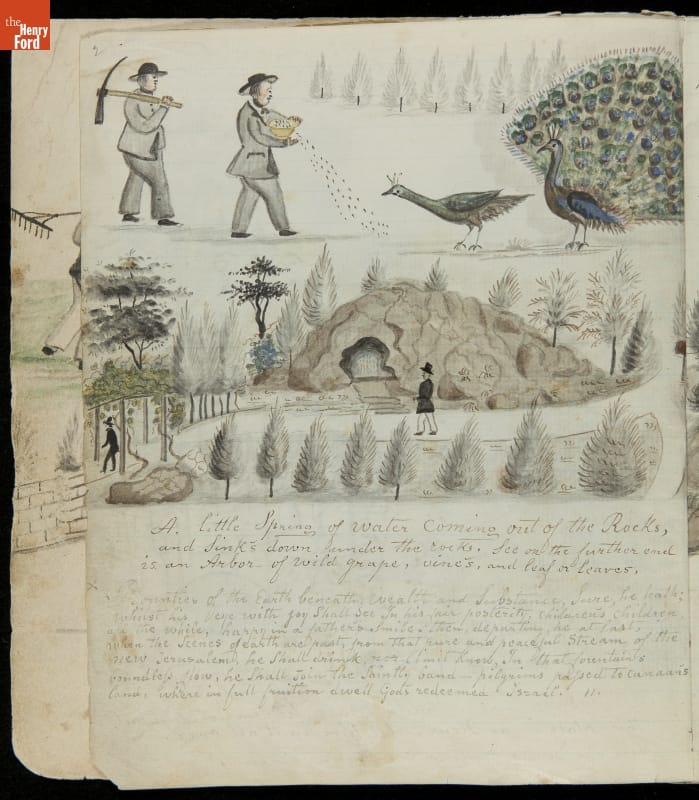 the
Henry
Ford
2
A. little Spring of water Coming out of the Rocks,
and Sink's down under the rocks. See on the further end
is an Arbor of Wild grape, vine's, and leaf or leaves.
Bounties of the Earth beneath, Wealth and Substance, Sure, he hath;
Whilst his eye with joy Shall See In his fair posterity, children's Children
the while, in a father's Smile. then, departing he at last,
When the Scenes of earth are past, from that pure and peaceful Stream of the
New Jerusalem, he Shall drink, nor limit Know, In that fountain's
boundless flow, he Shall Join the Saintly band — pilgrims passed to Canaan's
land, where in full fruition dwell God's redeemed Israel. 11.